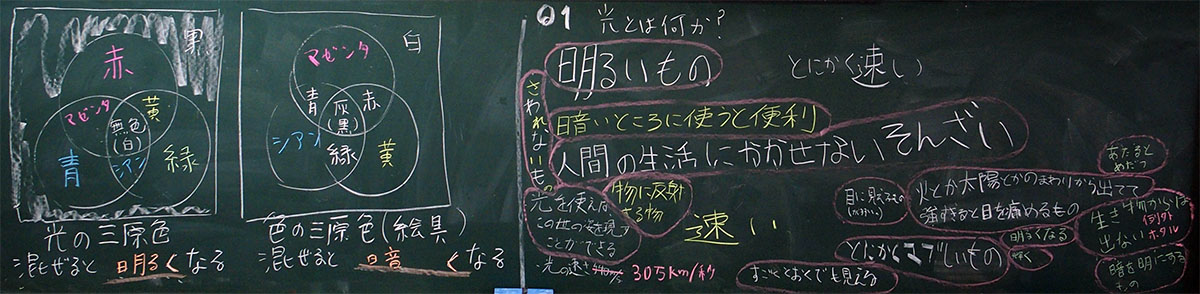 黒
赤
マゼンタ
黄
無色
(白)
青
シアン
緑
光の三原色
混ぜると 明るく なる
白
マゼンタ
青
灰
(黒)
赤
シアン
緑
黄
色の三原色(絵具)
混ぜると 暗 く なる
01 光とは何か?
明るいもの
とにかく速い
さわれないもの
暗いところに使うと便利
人間の生活にかかせないそんざい
光を使えば
この世の姿を現す
ことができる
物に反射
する物
速い
光の速さ
30万km/秒
目に見えるもの
火とか太陽とかのまわりから出てて
強すぎると目を痛めるもの
とにかくマブしいもの
明るくなる
輝く
すごくとおくでも見える
あたると
めだつ
生き物からは
出ない
例外
ホタル
暗を明にする
もの